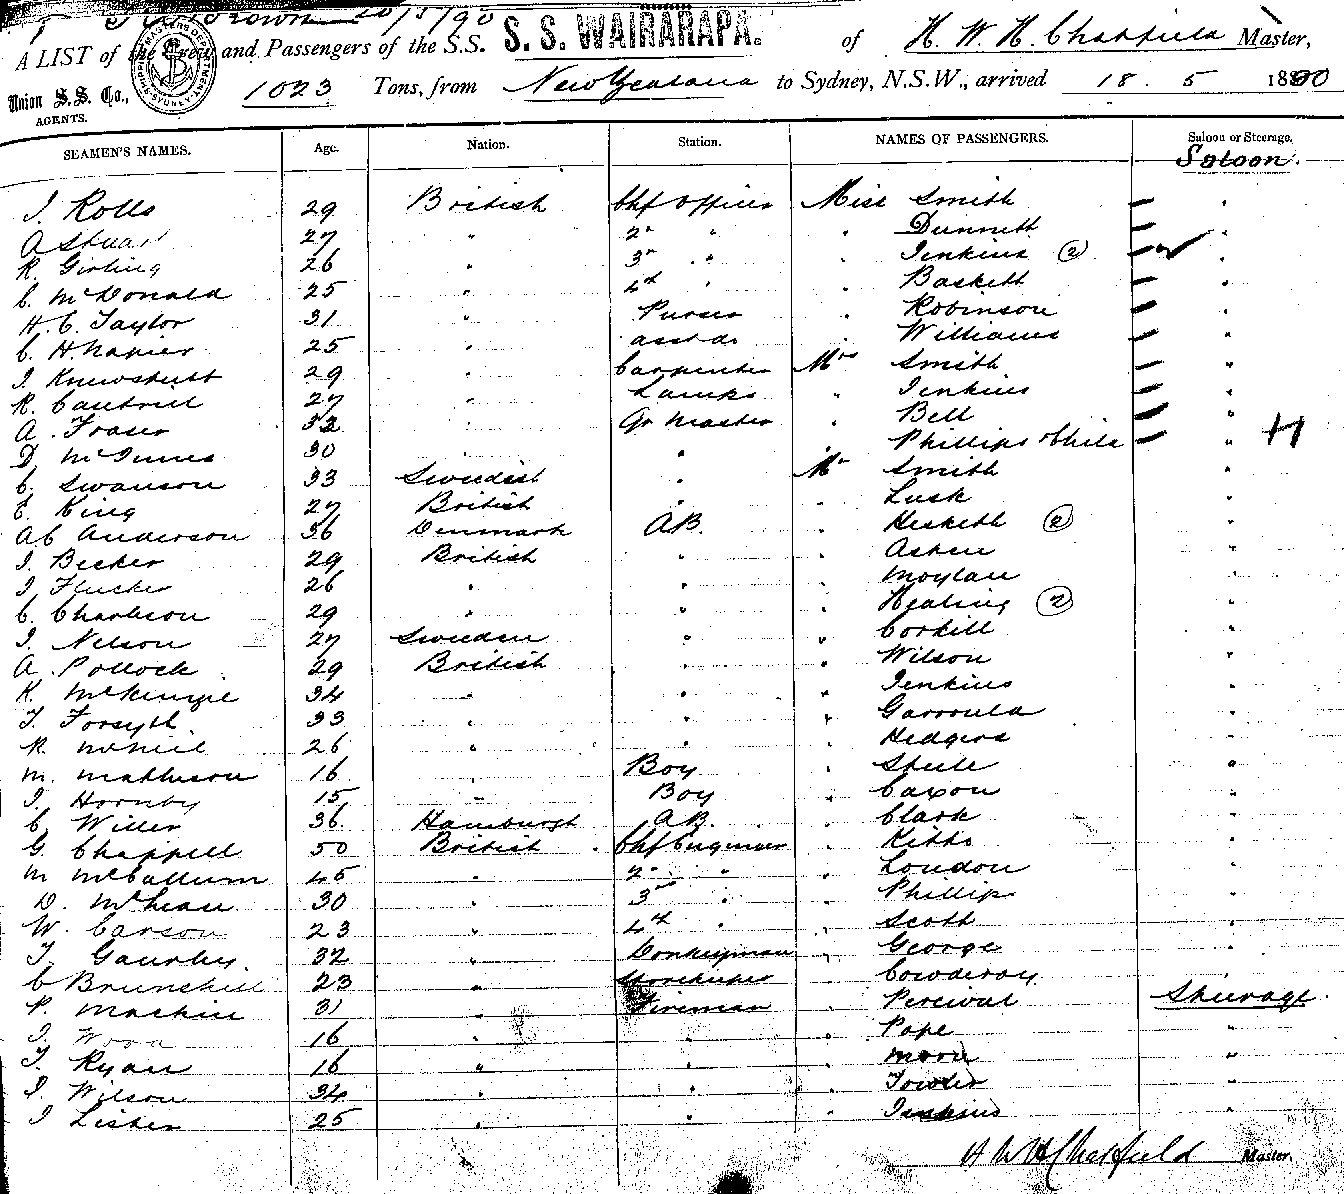 Brown 20/5/90
A LIST of the Crew and Passengers of the S.S. S. S. WAIRARAPA. of H. W. H. Chatfield Master,
Union S.S. Co., AGENTS. 1023 Tons, from New Zealand to Sydney, N.S.W., arrived 18 . 5 1890
SHIPPING MASTERS DEPARTMENT SYDNEY
SEAMEN'S NAMES. Age. Nation. Station. NAMES OF PASSENGERS. Saloon or Steerage.
Saloon.
J. Rolls 29 British Chf Officer Miss Smith "
A Stuart 27 " 2nd " " Dunnett "
R. Girling 26 " 3rd " " Jenkins (2) "
C. McDonald 25 " 4th " " Baskett "
H. C. Taylor 31 " Purser " Robinson "
C. H. Napier 25 " asst do " Williams "
J. Knewstubb 29 " Carpenter Mrs Smith "
R. Cantrill 27 " Lamps " Jenkins "
A. Fraser 32 " Qr Master " Bell "
D. McInnes 30 " " " Phillips & Child " H
C. Swanson 33 Swedish " Mr Smith "
E. King 27 British " " Lusk "
A C Anderson 36 Denmark A.B. " Hesketh (2) "
J. Becker 29 British " " Asher "
J. Flucker 26 " " " Moylan "
C. Charleson 29 " " " Healing (2) "
J. Nelson 27 Sweden " " Corkill "
A. Pollock 29 British " " Wilson "
K. McKenzie 34 " " " Jenkins "
T. Forsyth 33 " " " "
R. McNeil 26 " " " Hedgers "
M. Matheson 16 " Boy " Steele "
J. Hornby 15 " Boy " Caxon "
C. Willer 36 Hamburgh A.B. " Clark "
G. Chappell 50 British Chf Engineer " Kibbs "
M. McCallum 45 " 2nd " " London "
D. McLean 30 " 3rd " " Phillips "
W. Carson 23 " 4th " " Scott "
T. 32 " Donkeyman " George "
C Brunskill 23 " Storekeeper " Cowderoy "
P. Machin 31 " Fireman " Percival Steerage.
J. Wood 16 " " " Pope "
T. Ryan 16 " " " Moon "
J. Wilson 34 " " " Fowler "
J Lister 25 " " " Jenkins
H W H Chatfield Master.